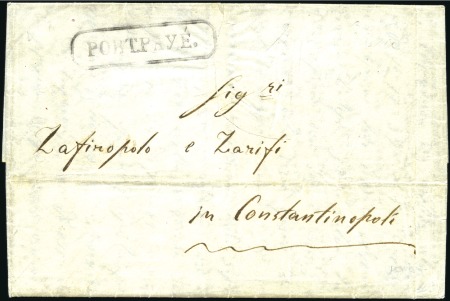 PORT PAYÉ.
Sig ri
Zafiropolo e Zarifi
in Constantinopoli